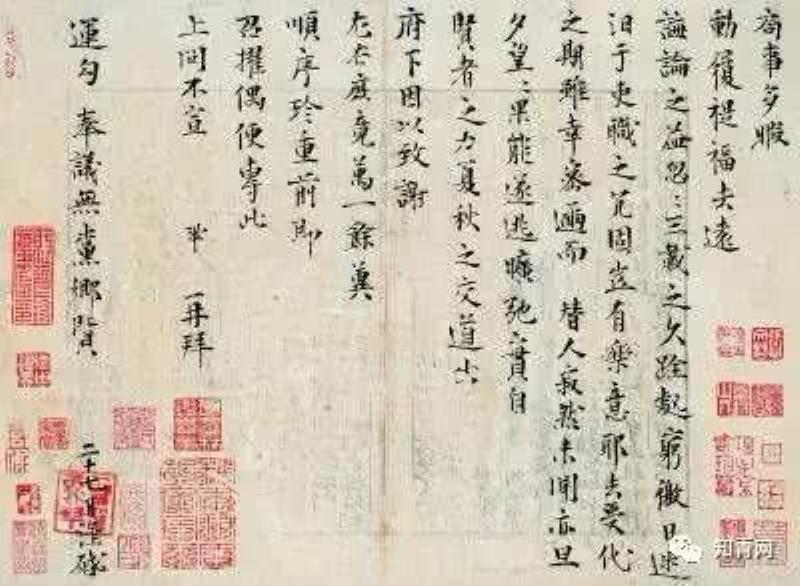 局事多暇
動履禔福去遠
誨論之益忽〻三載之久跧處窮徼日迷
汩于吏職之冗固豈有樂意耶去受代
之期雖幸密邇而 替人寂然未聞亦旦
夕望〻果能遂逃曠弛實自
賢者之力夏秋之交道出
府下因以致謝
左右庶竟萬一餘冀
順序珍重前即
召擢偶便專此
上問不宣 鞏 再拜
運勾奉議無黨鄉賢 二十七日謹啟
知青网